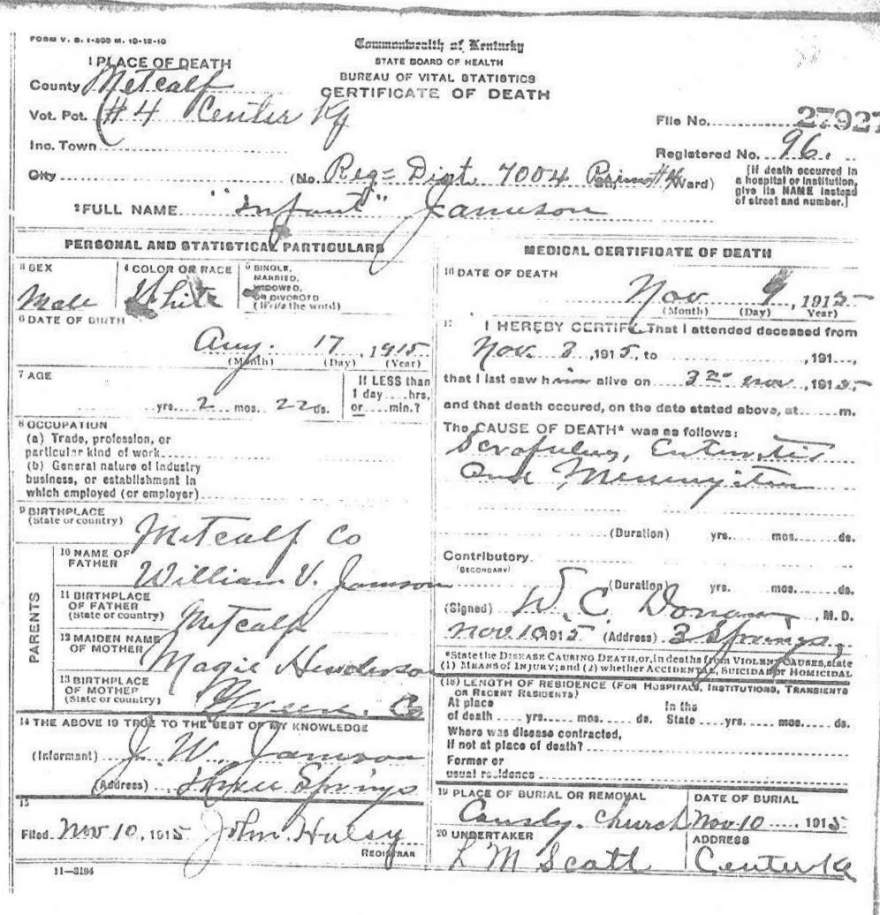 FORM V. S. 1-300 M. 10-12-10
Commonwealth of Kentucky
STATE BOARD OF HEALTH
BUREAU OF VITAL STATISTICS
CERTIFICATE OF DEATH
1 PLACE OF DEATH
County Metcalf
Vot. Pct. #4 Center Ky
Inc. Town
City (No. Reg= Dist 7004 Ward)
File No. 27927
Registered No. 96.
[If death occurred in
a hospital or institution,
give its NAME instead
of street and number.]
2 FULL NAME "Infant" Jamison
PERSONAL AND STATISTICAL PARTICULARS
3 SEX
Male
4 COLOR OR RACE
White
5 SINGLE,
MARRIED,
WIDOWED,
OR DIVORCED
(Write the word)
6 DATE OF BIRTH
Aug. 17, 1915
(Month) (Day) (Year)
7 AGE
yrs. 2 mos. 22 ds.
If LESS than
1 day hrs,
or min.?
8 OCCUPATION
(a) Trade, profession, or
particular kind of work
(b) General nature of industry
business, or establishment in
which employed (or employer)
9 BIRTHPLACE
(State or country) Metcalf Co
PARENTS
10 NAME OF
FATHER William V. Jamison
11 BIRTHPLACE
OF FATHER
(State or country) Metcalf
12 MAIDEN NAME
OF MOTHER Magie Henderson
13 BIRTHPLACE
OF MOTHER
(State or country) Green Co
14 THE ABOVE IS TRUE TO THE BEST OF MY KNOWLEDGE
(Informant) J. W. Jamison
(Address) Three Springs
15
Filed Nov 10, 1915 John Hulsy
REGISTRAR
11—3184
MEDICAL CERTIFICATE OF DEATH
16 DATE OF DEATH
Nov 9, 1915
(Month) (Day) Year)
17 I HEREBY CERTIFY That I attended deceased from
Nov. 3, 1915, to , 191 ,
that I last saw him alive on 3rd Nov, 1915
and that death occured, on the date stated above, at m.
The CAUSE OF DEATH* was as follows:
Enteritis
and
(Duration) yrs. mos. ds.
Contributory
(SECONDARY)
(Duration) yrs. mos. ds.
(Signed) W. C. Donan, M. D.
Nov 10 1915 (Address) 3 Springs
*State the DISEASE CAUSING DEATH, or, in deaths from VIOLENT CAUSES, state
(1) MEANS of INJURY; and (2) whether ACCIDENTAL, SUICIDAL or HOMICIDAL
(18) LENGTH OF RESIDENCE (FOR HOSPITALS, INSTITUTIONS, TRANSIENTS
OR RECENT RESIDENTS)
At place In the
of death yrs. mos. ds. State yrs. mos. ds.
Where was disease contracted,
if not at place of death?
Former or
usual residence
19 PLACE OF BURIAL OR REMOVAL
Church
DATE OF BURIAL
Nov 10 1915
20 UNDERTAKER
L M Scott
ADDRESS
Center Ky